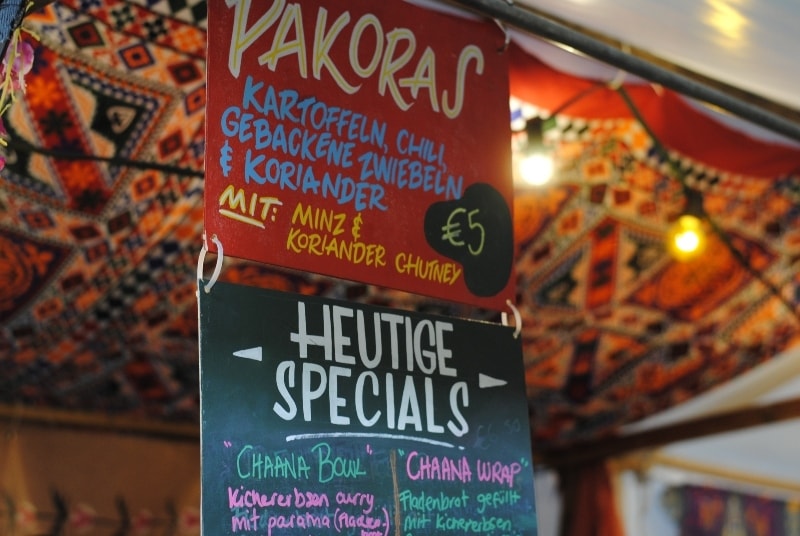 PAKORAS
KARTOFFELN, CHILI,
GEBACKENE ZWIEBELN
& KORIANDER
MIT: MINZ &
KORIANDER CHUTNEY
€5
HEUTIGE
SPECIALS
"CHAANA BOWL"
Kichererbsen curry
mit paratha (Fladen-
"CHAANA WRAP"
Fladenbrot gefüllt
mit Kichererbsen